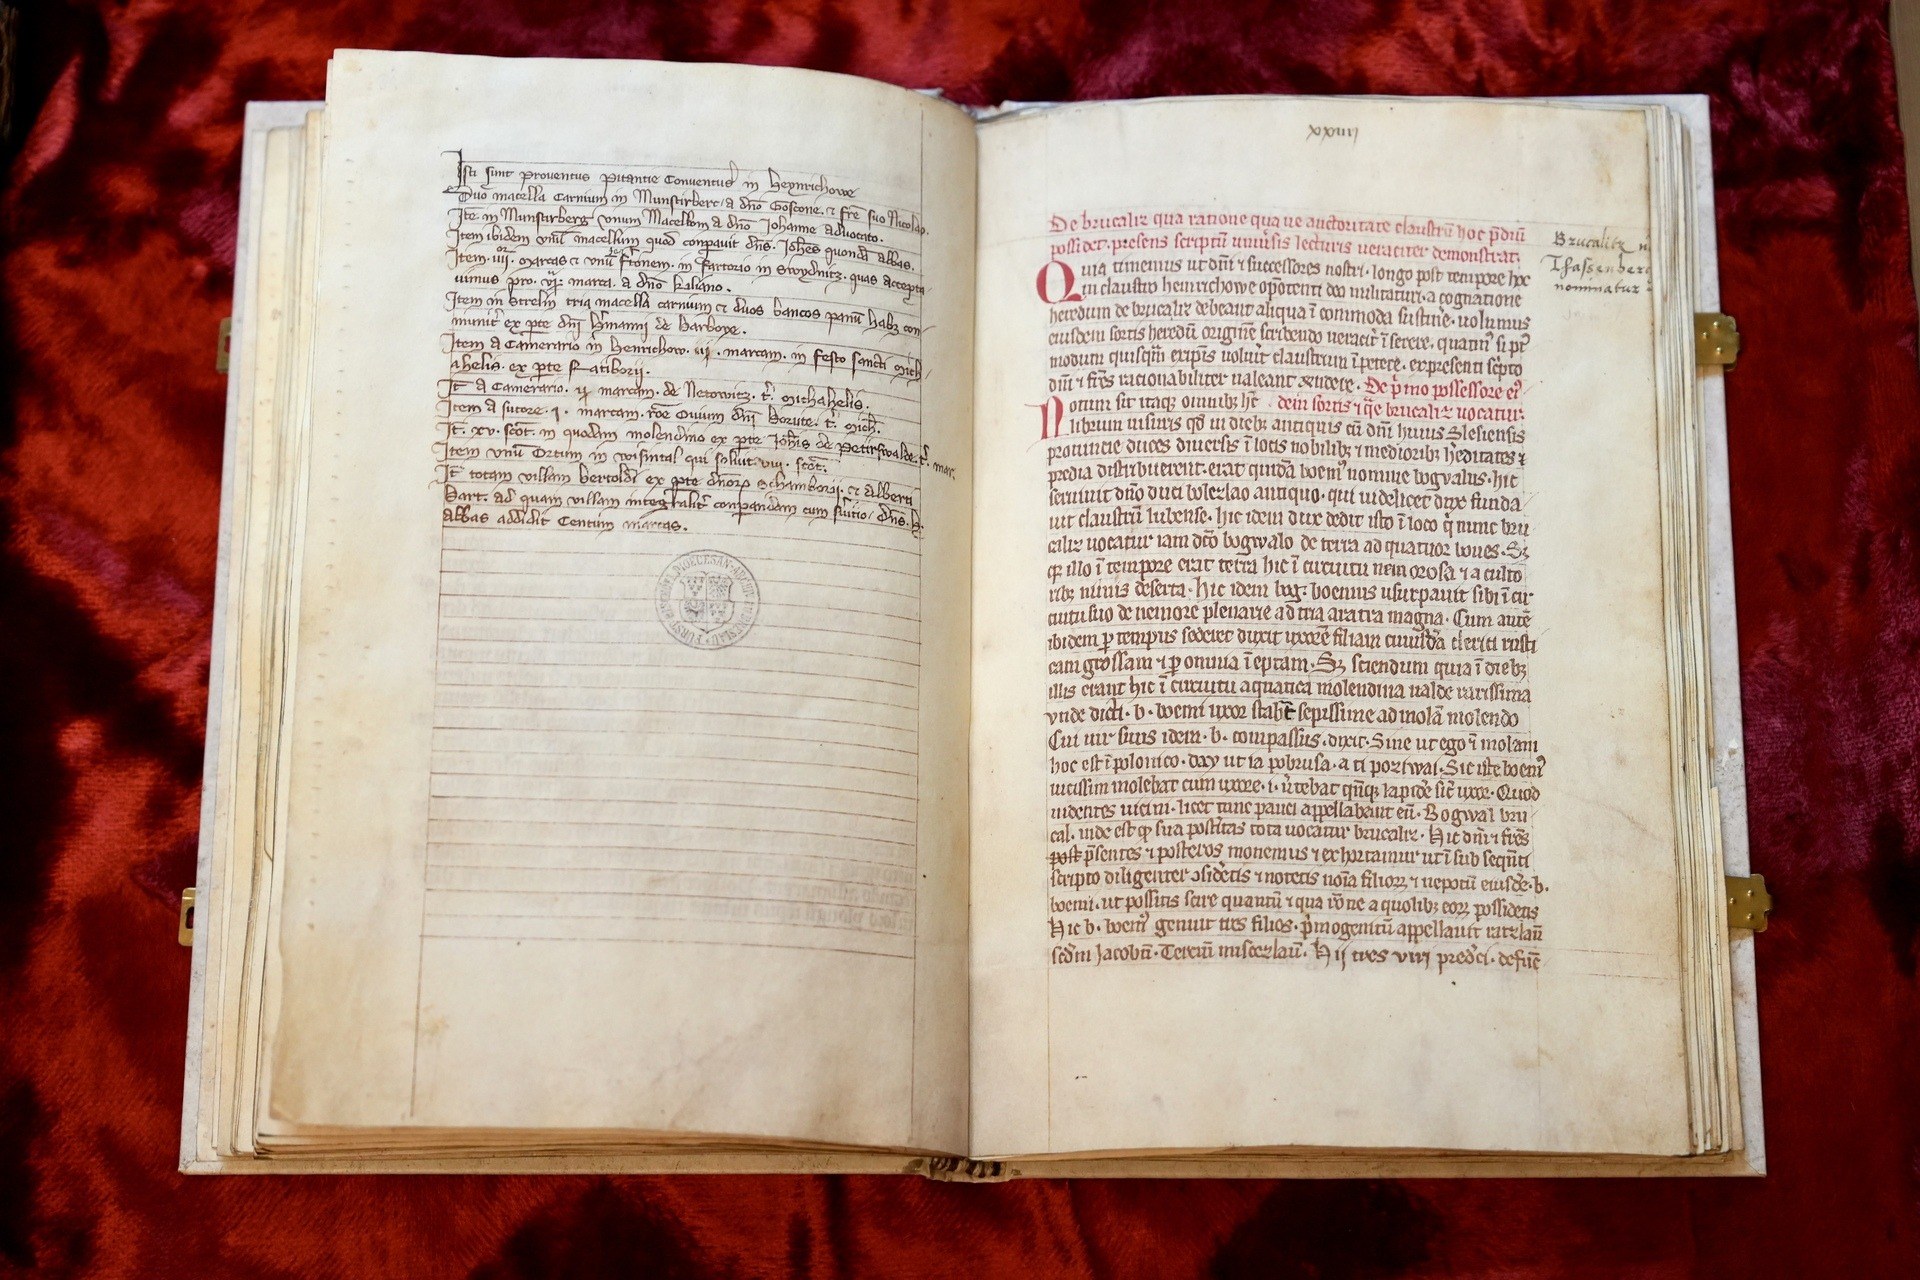 Isti sunt proventus pitantie Conventus in heynrichowe
Duo macella Carnium in Munstirberc a dno Goscone. et fre suo Nicolao.
Ite. in Munstirberg vnum Macellum a dno Johanne advocato.
Item ibidem vnu macellum quod conpauit dns. Johes quonda abbas.
Item. iiii. marcas et vnu fertonem. in sartorio in Swydnitz. quas accepta
uimus pro. marca. a dno Kiliano.
Item in Strelin tria macella carnium et duos bancos panu habz con-
munit ex pte dni Hmanni de Barboye.
Item a Camerario in Henrichow. marcam. in festo sancti mich-
ahelis. ex pte Ratiborii.
It a Camerario. marcam. de Netowitz. t. michahelis.
Item a sutore. i. marcam. roe Ovium dni Borute. t. mich.
It. xv. scot. in quodam molendino ex pte Johis de Petirswalde. t. mar.
Item vnu Ortum in wisintal qui soluit viii. scot.
It totam villam bertoldi ex pte dnor schamborii. et alberti
Bart. ad quam villam integraliter conparandam cum seruitio. dns. h.
abbas addidit Centum marcas.
xxiiii
De brucaliz qua ratione qua ue auctoritate claustru hoc pdiu
possidet. presens scriptu uniusis lecturis ueraciter demonstrat.
Brucalitz
Thassenberc
nominatur
Quia timemus ut dni et successores nostri. longo post tempore hoc
in claustro heinrichowe opotenti deo militaturi. a cognatione
heredum de brucaliz debeant aliqua i commoda sustine. uolumus
eiusdem sortis heredu origine scribendo ueracit i serere. quatin si pt
modum quisqm exipis voluit claustrum ipetere. ex presenti scpto
dni et fres racionabiliter ualeant rendere. De pmo possessore ei
Notum sit itaq omnibz hc dem sortis et qre brucaliz uocatur.
librum uisuris qd in diebz antiquis cu dni huius Slesiensis
prouincie duces diuersis i locis nobilibz et mediocribz heditates et
predia distribuerent. erat quida boem nomine bogvalus. hic
seruiuit dno duci bolezlao antiquo. qui uidelicet dux funda
uit claustru lubense. hic idem dux dedit isto i loco q nunc bru
caliz uocatur iam dco bogwalo de terra ad quatuor boues. Sz
qr illo i tempore erat terra hic i circuitu nemorosa et a culto
ribz nimis deserta. Hic idem bog. boemus usurpauit sibi i cir
cuitu suo de nemore plenarie ad tria aratra magna. Cum aute
ibidem p tempus sederet duxit uxore filiam cuiusda clerici rusti
cam grossam et p omnia ieptam. Sz sciendum quia i diebz
illis erant hic i circuitu aquatica molendina ualde rarissima
vnde dicti. b. boemi uxor stabat sepissime ad mola molendo
Cui uir suus idem. b. compassus. dixit. Sine ut ego i molam
hoc est i polonico. day ut ia pobrusa. a ti poziwai. Sic iste boem
uicissim molebat cum uxore. i. utebat qnqz lapide sic uxor. Quod
uidentes uicini. licet tunc pauci appellabant eu. Bogwal bru
cal. inde est qr sua posteritas tota uocatur brucaliz. Hic dni et fres
post psentes et posteros monemus et exhortamur ut i sub sequnti
scripto diligenter osideris et notetis noia filiorz et nepotu eiusde. b.
boemi. ut possitis scire quantu et qua rone a quolibz eorz possidetis
Hic b. boem genuit tres filios. pmogenitu appellauit ratzlau
scdm Jacobu. Terciu miscezlau. Hij tres viri predci. defucte